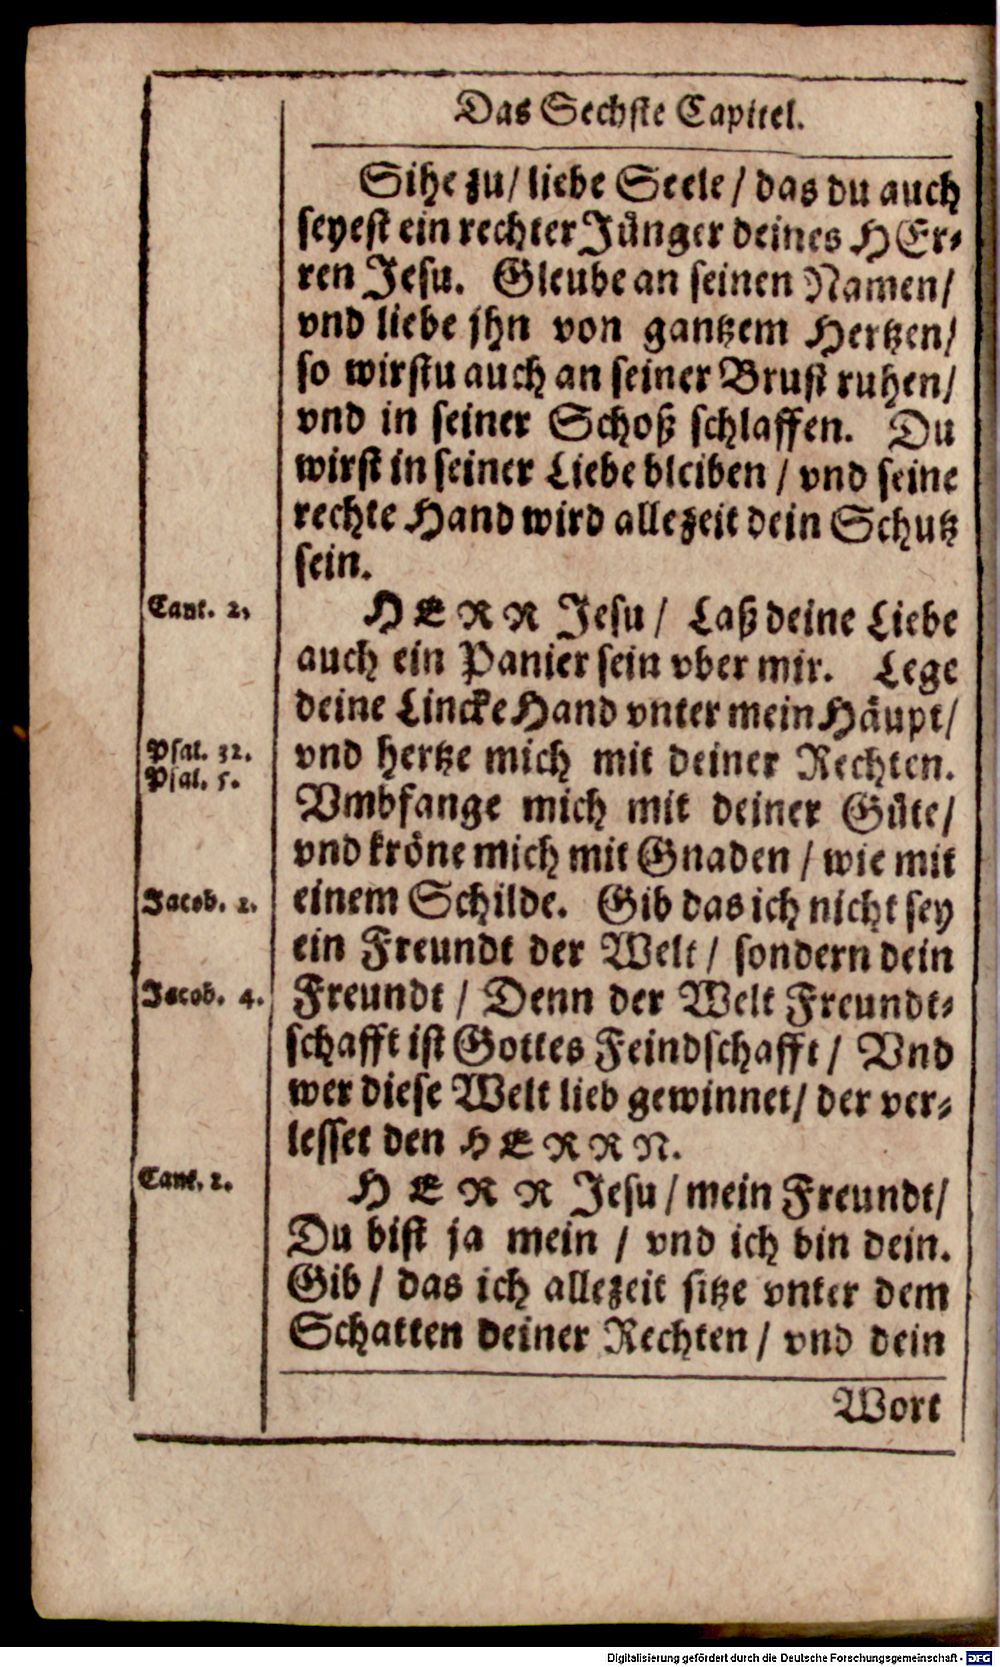 Das Sechste Capitel.
Sihe zu/ liebe Seele/ das du auch
seyest ein rechter Jünger deines HEr-
ren Jesu. Gleube an seinen Namen/
vnd liebe jhn von gantzem Hertzen/
so wirstu auch an seiner Brust ruhen/
vnd in seiner Schoß schlaffen. Du
wirst in seiner Liebe bleiben / vnd seine
rechte Hand wird allezeit dein Schutz
sein.
Cant. 2.
HERR Jesu/ Laß deine Liebe
auch ein Panier sein vber mir. Lege
deine Lincke Hand vnter mein Häupt/
Psal. 32.
vnd hertze mich mit deiner Rechten.
Psal. 5.
Vmbfange mich mit deiner Güte/
vnd kröne mich mit Gnaden / wie mit
Jacob. 2.
einem Schilde. Gib das ich nicht sey
ein Freundt der Welt / sondern dein
Jacob. 4.
Freundt / Denn der Welt Freundt-
schafft ist Gottes Feindschafft / Vnd
wer diese Welt lieb gewinnet/ der ver-
lesset den HERRN.
Cant. 2.
HERR Jesu / mein Freundt/
Du bist ja mein / vnd ich bin dein.
Gib / das ich allezeit sitze vnter dem
Schatten deiner Rechten / vnd dein
Wort
Digitalisierung gefördert durch die Deutsche Forschungsgemeinschaft - DFG